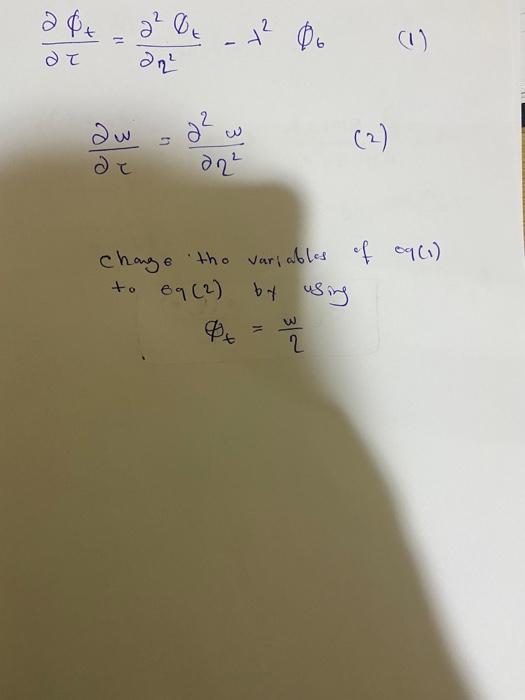 ∂φt/∂τ = ∂²φt/∂η² - λ² φ6 (1)
∂w/∂τ = ∂²w/∂η² (2)
change the variables of eq(1)
to eq(2) by using
φt = w/η